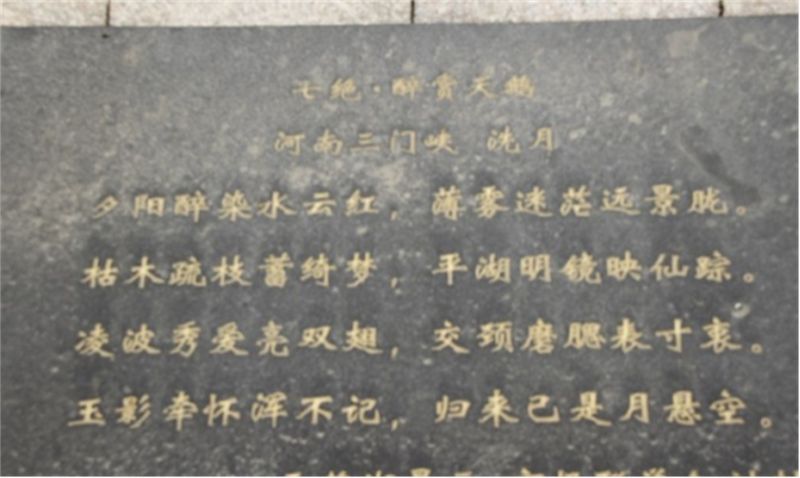 七绝·醉赏天鹅
河南三门峡 洗月
夕阳醉染水云红，薄雾迷茫远景胧。
枯木疏枝蓄绮梦，平湖明镜映仙踪。
凌波秀爱亮双翅，交颈磨腮表寸衷。
玉影牵怀浑不记，归来已是月悬空。